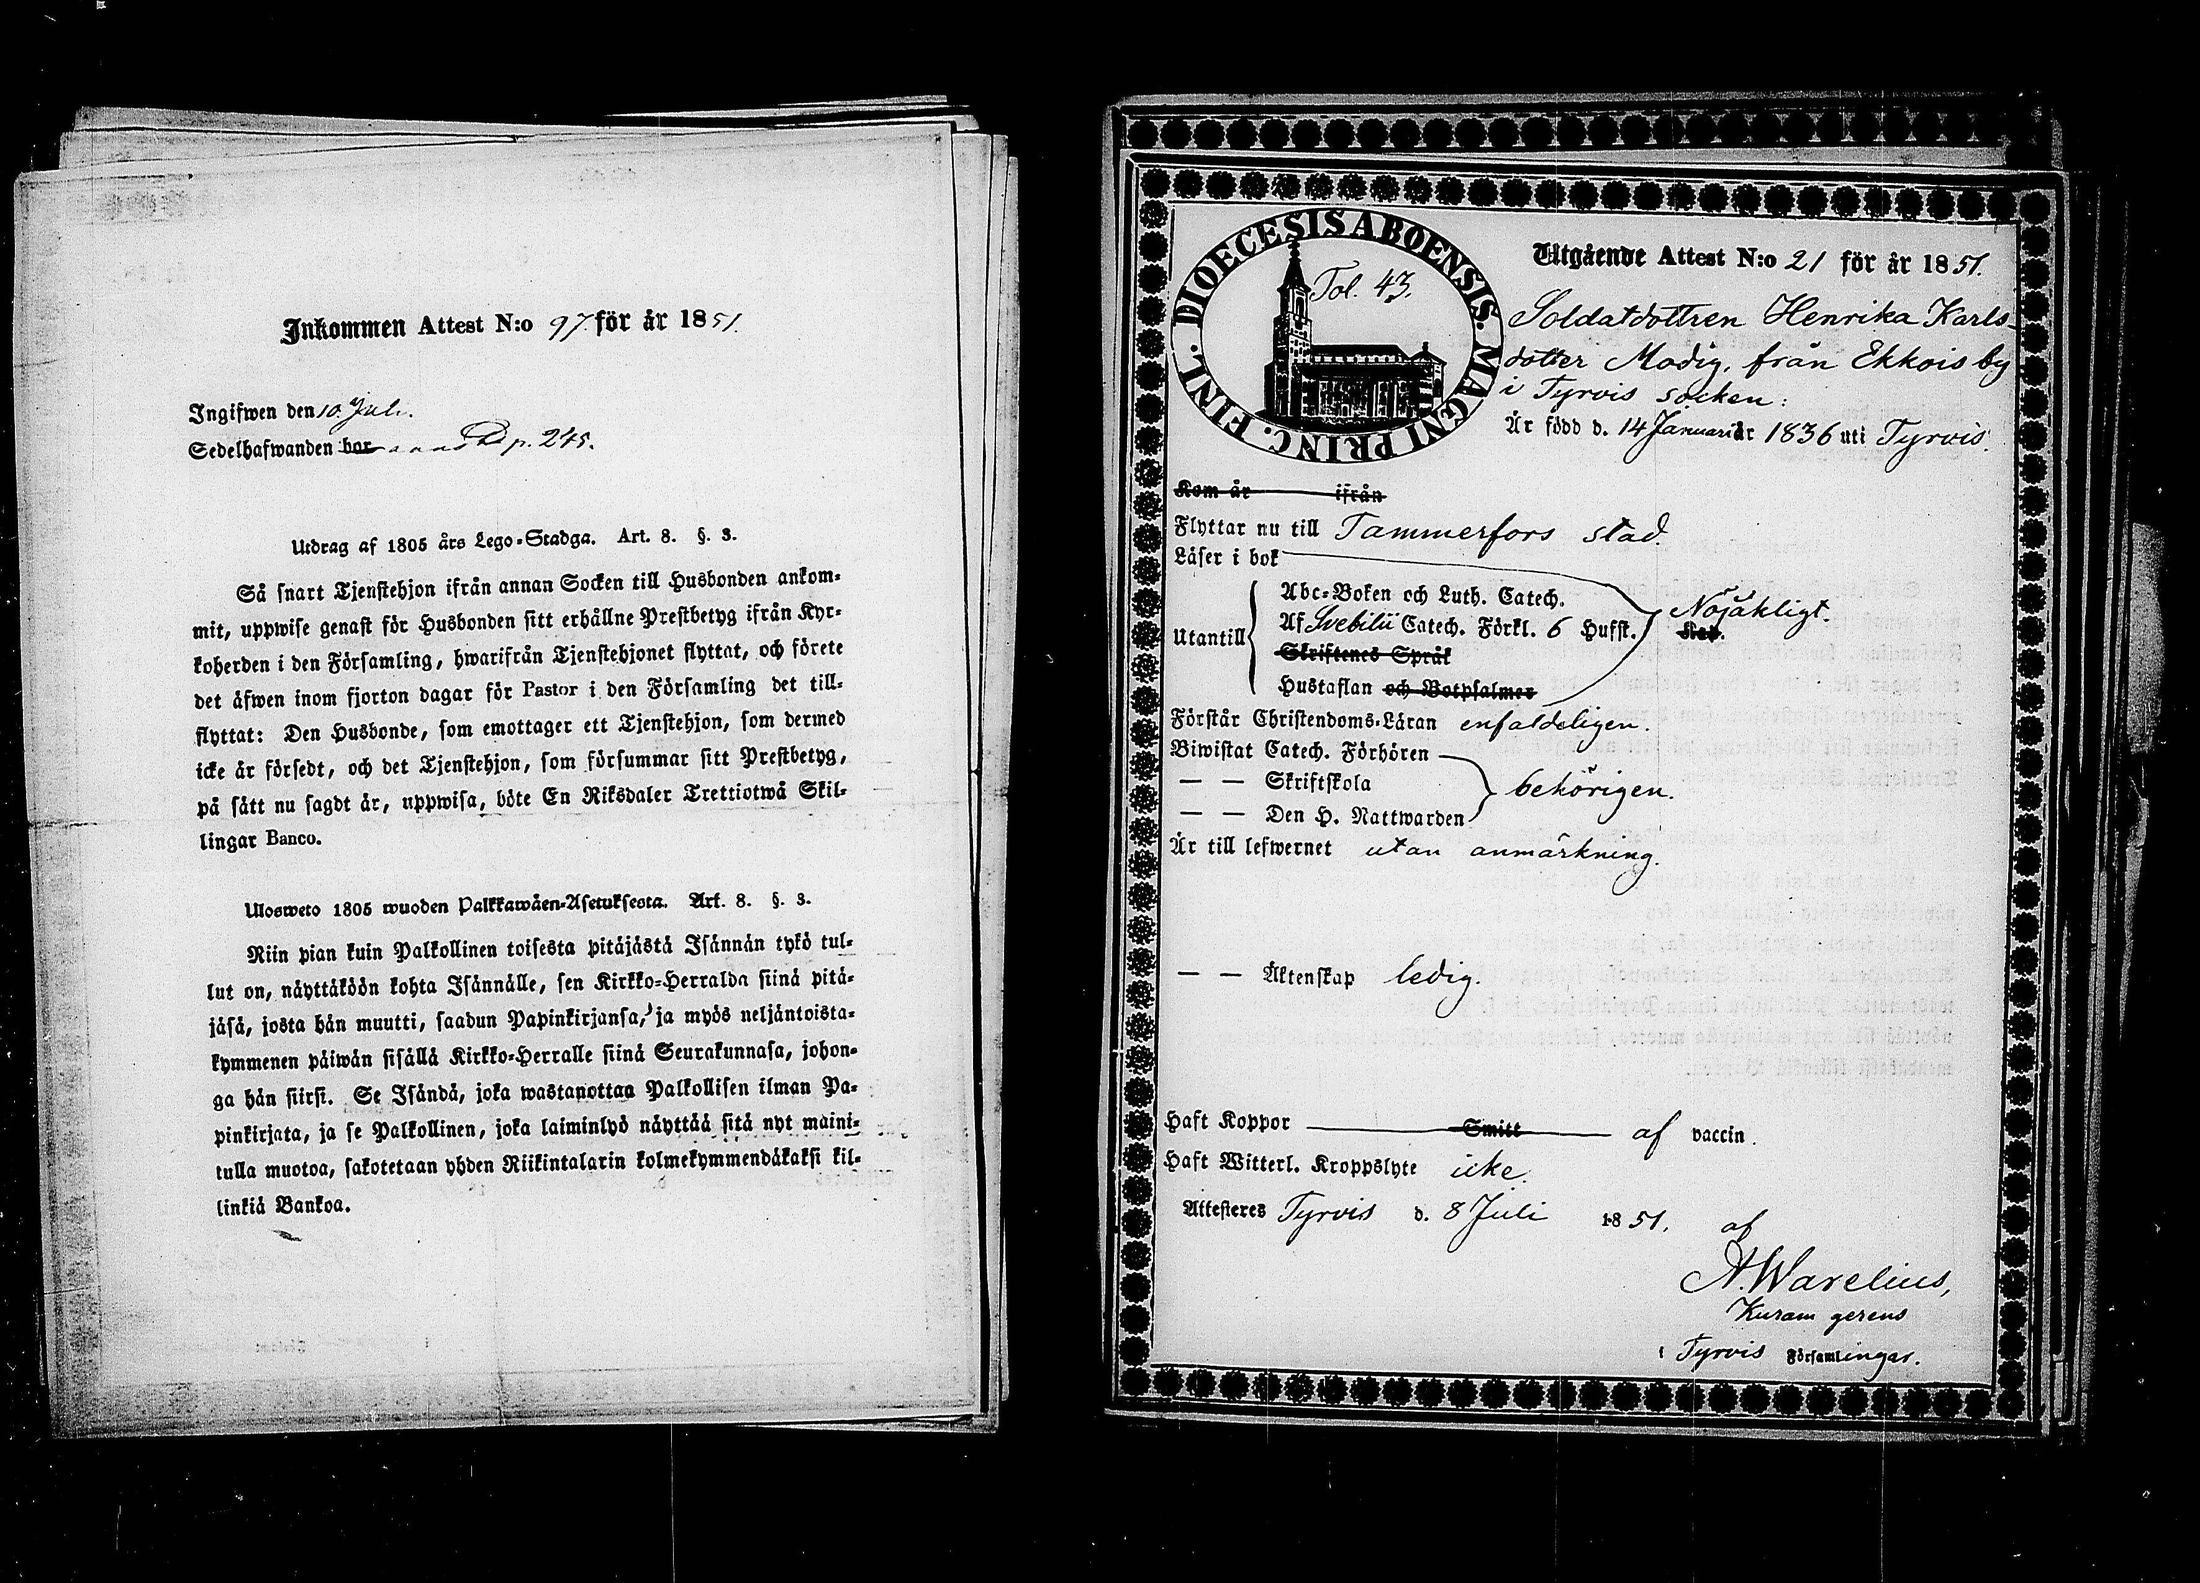 Inkommen Attest N:o 97 för år 1851.
Ingifwen den 10. Juli.
Sedelhafwanden bor p. 245.
Utdrag af 1805 års Lego-Stadga. Art. 8. §. 3.
Så snart Tjenstehjon ifrån annan Socken till Husbonden ankom-
mit, uppwise genast för Husbonden sitt erhållne Prestbetyg ifrån Kyr-
koherden i den Församling, hwarifrån Tjenstehjonet flyttat, och förete
det äfwen inom fjorton dagar för Pastor i den Församling det till-
flyttat: Den Husbonde, som emottager ett Tjenstehjon, som dermed
icke är försedt, och det Tjenstehjon, som försummar sitt Prestbetyg,
på sätt nu sagdt är, uppwisa, böte En Riksdaler Trettiotwå Skil-
lingar Banco.
Ulosweto 1805 wuoden Palkkawäen-Asetuksesta. Art. 8. §. 3.
Niin pian kuin Palkollinen toisesta pitäjästä Isännän tykö tul-
lut on, näyttäköön kohta Isännälle, sen Kirkko-Herralda siinä pitä-
jäsä, josta hän muutti, saadun Papinkirjansa, ja myös neljäntoista-
kymmenen päiwän sisällä Kirkko-Herralle siinä Seurakunnasa, johon-
ga hän siirsi. Se Isändä, joka wastanottaa Palkollisen ilman Pa-
pinkirjata, ja se Palkollinen, joka laiminlyö näyttää sitä nyt maini-
tulla muotoa, sakotetaan yhden Riikintalarin kolmekymmendäkaksi kil-
linkiä Bankoa.
DIOECESIS ABOENSIS. MAGNI PRINC. FINL.
Fol. 43.
Utgående Attest N:o 21 för år 1851.
Soldatdottren Henrika Karls-
dotter Modig, från Ekkois by
i Tyrvis socken:
Är född d. 14 Januari år 1836 uti Tyrvis.
Kom år ifrån
Flyttar nu till Tammerfors stad.
Läser i bok
Utantill
Abc-Boken och Luth. Catech.
Af Svebilii Catech. Förkl. 6 Hufst.
Skriftenes Språk
Hustaflan och Botpsalmer
Nöjäktigt.
Förstår Christendoms-Läran enfaldeligen.
Biwistat Catech. Förhören
— — Skriftskola
— — Den H. Nattwarden
behörigen.
Är till lefwernet utan anmärkning.
— — Äktenskap ledig.
Haft Koppor Smitt af vaccin.
Haft Witterl. Kroppslyte icke.
Attesteres Tyrvis d. 8 Juli 1851. af
A. Warelius,
Kuram gerens
i Tyrvis Församlingar.